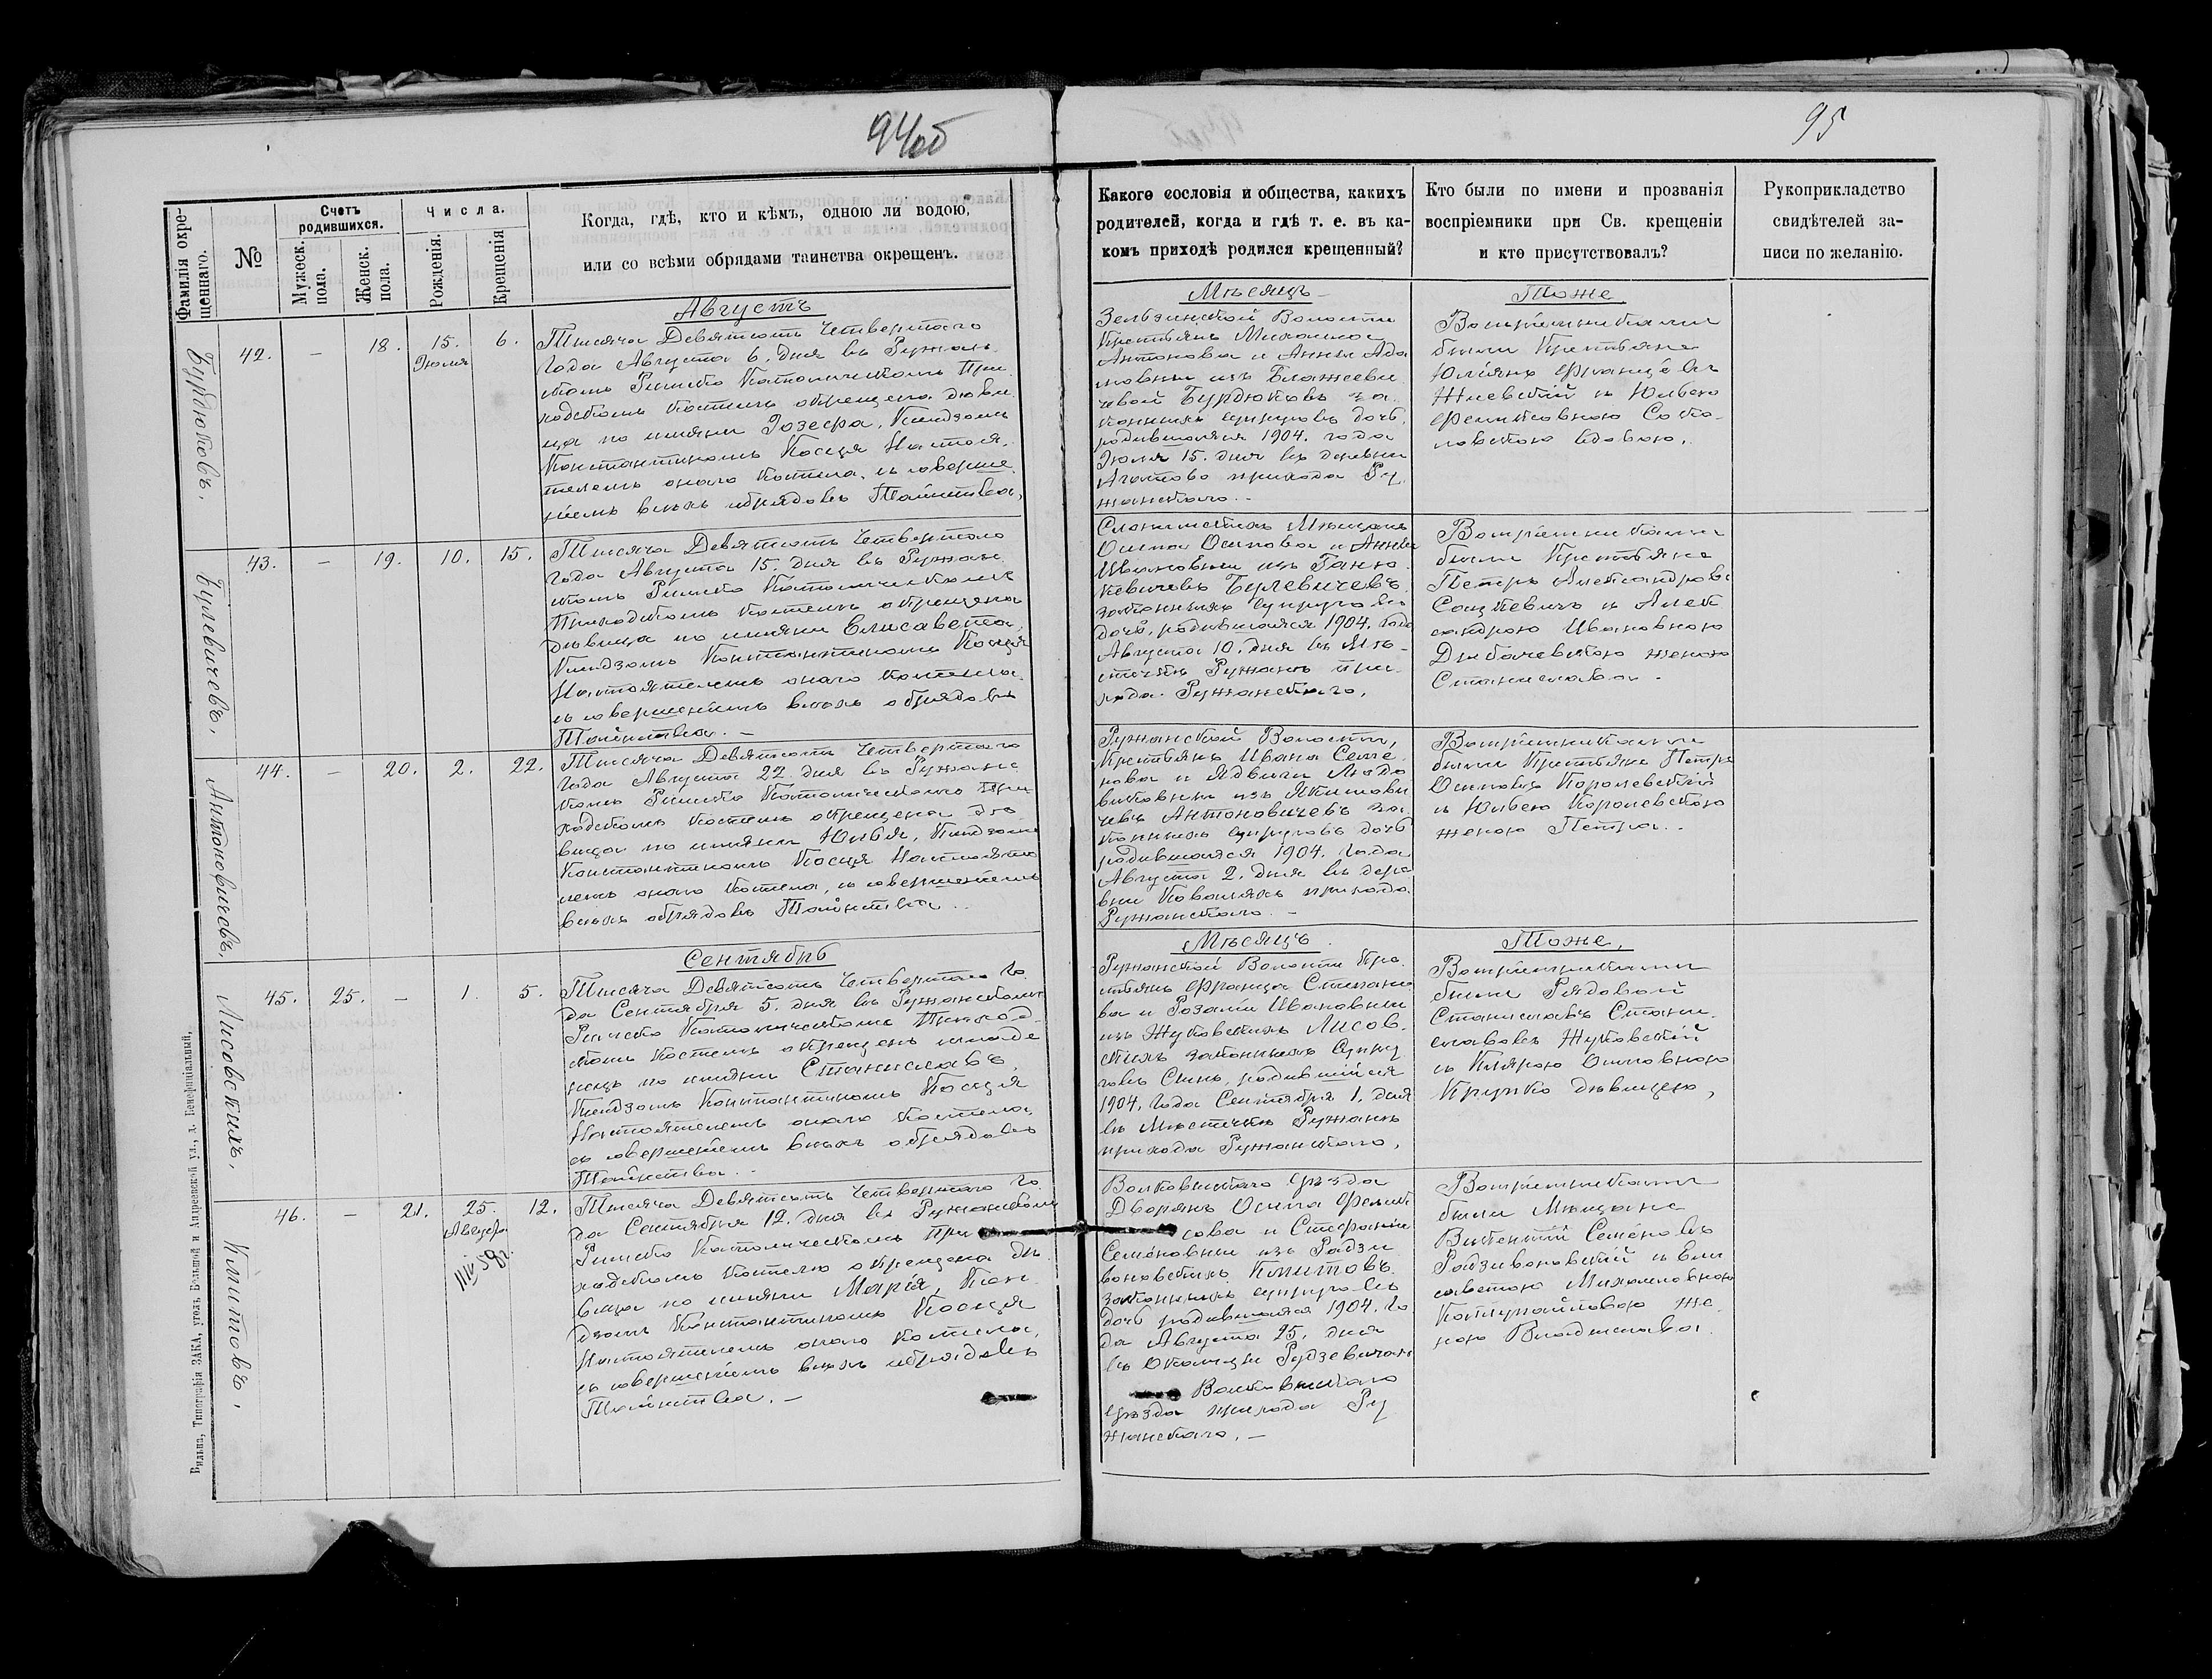 94об
95
Фамилія окре-
щеннаго.
№
Счетъ
родившихся.
Мужеск.
пола.
Женск.
пола.
Числа.
Рожденія.
Крещенія
Когда, гдѣ, кто и кѣмъ, одною ли водою,
или со всѣми обрядами таинства окрещенъ.
Какого сословія и общества, какихъ
родителей, когда и гдѣ т. е. въ ка-
комъ приходѣ родился крещенный?
Кто были по имени и прозванія
воспріемники при Св. крещеніи
и кто присутствовалъ?
Рукоприкладство
свидѣтелей за-
писи по желанію.
Августъ
Мѣсяцъ
Тоже
Бурдюковъ.
42. — 18. 15. Іюля 6.
Тысяча Девятсотъ Четвертаго
Года Августа 6. дня въ Ружан-
скомъ Римско Католическомъ При
ходскомъ Костелѣ окрещена дѣви-
ца по имяни Іозефа, Ксендзомъ
Константиномъ Косція Настоя-
телемъ онаго Костела, съ соверше
ніемъ всѣхъ обрядовъ Таинства.
Зельзинской Волости
Крестьянъ Михаила
Антонова и Анны Ада
мовны изъ Блажееви
чевой Бурдюковъ за-
конныхъ супруговъ дочь,
родившаяся 1904. года
Іюля 15. дня въ деревни
Агатово прихода Ру
жанскаго.
Воспріемниками
были Крестьяне
Юліянъ Францовъ
Жиевскій и Юлією
Феликсовною Соко-
ловскою вдовою.
Булевичевъ.
43. — 19. 10. 15.
Тысяча Девятсотъ Четвертаго
Года Августа 15. дня въ Ружан
скомъ Римско Католическомъ
Приходскомъ Костелѣ окрещена
дѣвица по имяни Елисавета,
Ксендзомъ Константиномъ Косція
Настоятелемъ онаго Костела,
съ совершеніемъ всѣхъ обрядовъ
Таинства. —
Слонимскихъ Мѣщанъ
Осипа Осипова и Анны
Ивановны изъ Ганю
кевичевъ Булевичевъ
законныхъ супруговъ
дочь, родившаяся 1904. года
Августа 10. дня въ Мѣ-
стечкѣ Ружанахъ при-
хода Ружанскаго.
Воспріемниками
были Крестьяне
Петръ Александровъ
Сацкевичъ и Алек
сандрою Ивановною
Дыбачевскою женою
Станислава.
Антоновичевъ.
44. — 20. 2. 22.
Тысяча Девятсотъ Четвертаго
Года Августа 22 дня въ Ружанс
комъ Римско Католическомъ При
ходскомъ Костелѣ окрещена дѣ
вица по имяни Юлія, Ксендзомъ
Константиномъ Косція Настояте
лемъ онаго Костела, съ совершеніемъ
всѣхъ обрядовъ Таинства.
Ружанской Волости,
Крестьянъ Ивана Семе
нова и Ядвиги Людо
виковны изъ Якимови
чевъ Антоновичевъ за-
конныхъ супруговъ дочь
родившаяся 1904. года
Августа 2. дня въ дере
вни Ковалях прихода
Ружанскаго. —
Воспріемниками
были Крестьяне Петръ
Осиповъ Королевскій
и Юлією Королевскою
женою Петра.
Сентябрь
Мѣсяцъ
Тоже,
Лисовскихъ.
45. 25. — 1. 5.
Тысяча Девятсотъ Четвертаго Го
да Сентября 5. дня въ Ружанскомъ
Римско Католическомъ Приход-
скомъ Костелѣ окрещенъ младе
нецъ по имяни Станиславъ,
Ксендзомъ Константиномъ Косція
Настоятелемъ онаго Костела
съ совершеніемъ всѣхъ обрядовъ
Таинства.
Ружанской Волости Кре
стьянъ Франца Степано
ва и Розаліи Ивановны
изъ Жуковскихъ Лисов-
скихъ законныхъ Супру
говъ Сынъ, родившійся
1904. года Сентября 1. дня
въ Мѣстечкѣ Ружанахъ
прихода Ружанскаго.
Воспріемниками
были Рядовой
Станиславъ Стани-
славовъ Жуковскій
съ Клярою Осиповною
Крупко дѣвицею,
Климовъ.
46. — 21. 25. Августа 12.
Тысяча Девятсотъ Четвертаго Го
да Сентября 12. дня въ Ружанскомъ
Римско Католическомъ При
ходскомъ Костелѣ окрещена дѣ
вица по имяни Марія, Ксен
дзомъ Константиномъ Косція
Настоятелемъ онаго Костела,
съ совершеніемъ всѣхъ обрядовъ
Таинства. —
Волковискаго Уѣзда
Дворянъ Осипа Феликсова и Стефаніи
Семеновны изъ Радзи
воновскихъ Климовъ
законныхъ супруговъ
дочь родившаяся 1904. Го
да Августа 25. дня
въ Околицы Рудзевичахъ
Волковискаго
Уѣзда прихода Ру
жанскаго. —
Воспріемниками
были Мѣщане
Викентій Семеновъ
Радзивоновскій и Ели
саветою Михайловною
женою Владислава.
Вильна, Типографія ЗАКА, уголъ Большой и Андреевской ул., д. Бенефиціальный.